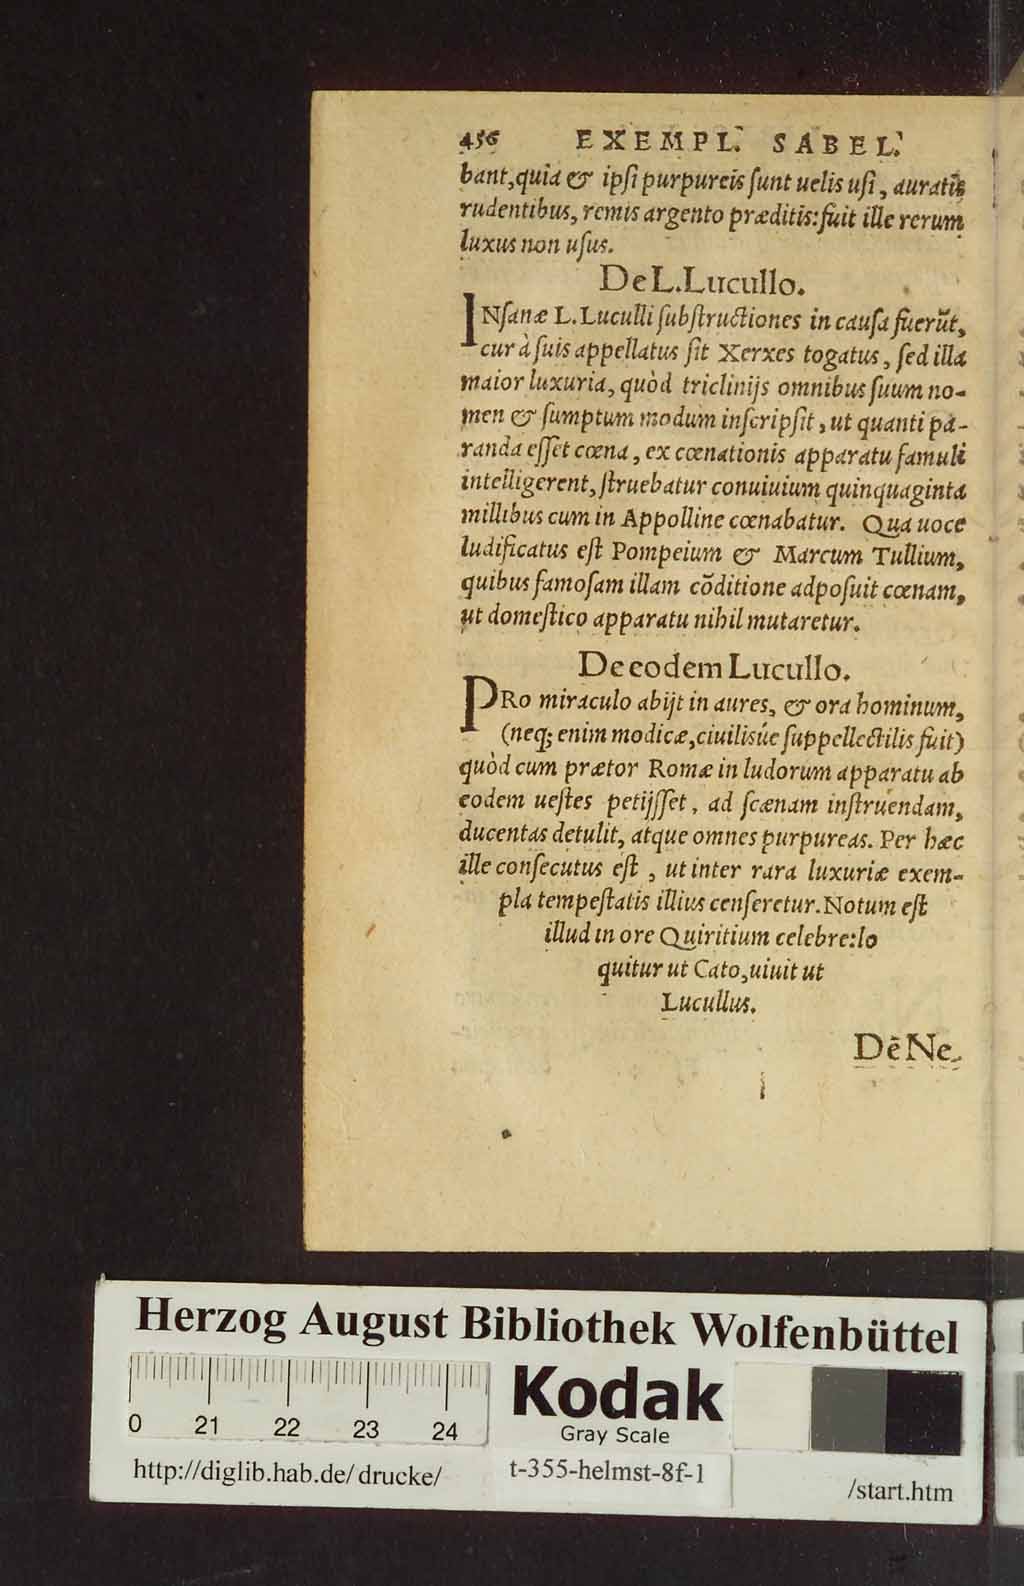 456 EXEMPL. SABEL.
bant, quia & ipſi purpureis ſunt uelis uſi, auratis
rudentibus, remis argento præditis: fuit ille rerum
luxus non uſus.
De L. Lucullo.
INſanæ L. Luculli ſubſtructiones in cauſa fuerūt,
cur à ſuis appellatus ſit Xerxes togatus, ſed illa
maior luxuria, quòd triclinijs omnibus ſuum no-
men & ſumptum modum inſcripſit, ut quanti pa-
randa eſſet cœna, ex cœnationis apparatu famuli
intelligerent, ſtruebatur conuiuium quinquaginta
millibus cum in Appolline cœnabatur. Qua uoce
ludificatus eſt Pompeium & Marcum Tullium,
quibus famoſam illam cōditione adpoſuit cœnam,
ut domeſtico apparatu nihil mutaretur.
De eodem Lucullo.
PRo miraculo abijt in aures, & ora hominum,
(neq; enim modicæ, ciuilisúe ſuppellectilis fuit)
quòd cum prætor Romæ in ludorum apparatu ab
eodem ueſtes petijſſet, ad ſcænam inſtruendam,
ducentas detulit, atque omnes purpureas. Per hæc
ille conſecutus eſt, ut inter rara luxuriæ exem-
pla tempeſtatis illius cenſeretur. Notum eſt
illud in ore Quiritium celebre: lo
quitur ut Cato, uiuit ut
Lucullus.
Dē Ne.
Herzog August Bibliothek Wolfenbüttel
0 21 22 23 24
Kodak
Gray Scale
http://diglib.hab.de/drucke/
t-355-helmst-8f-1
/start.htm